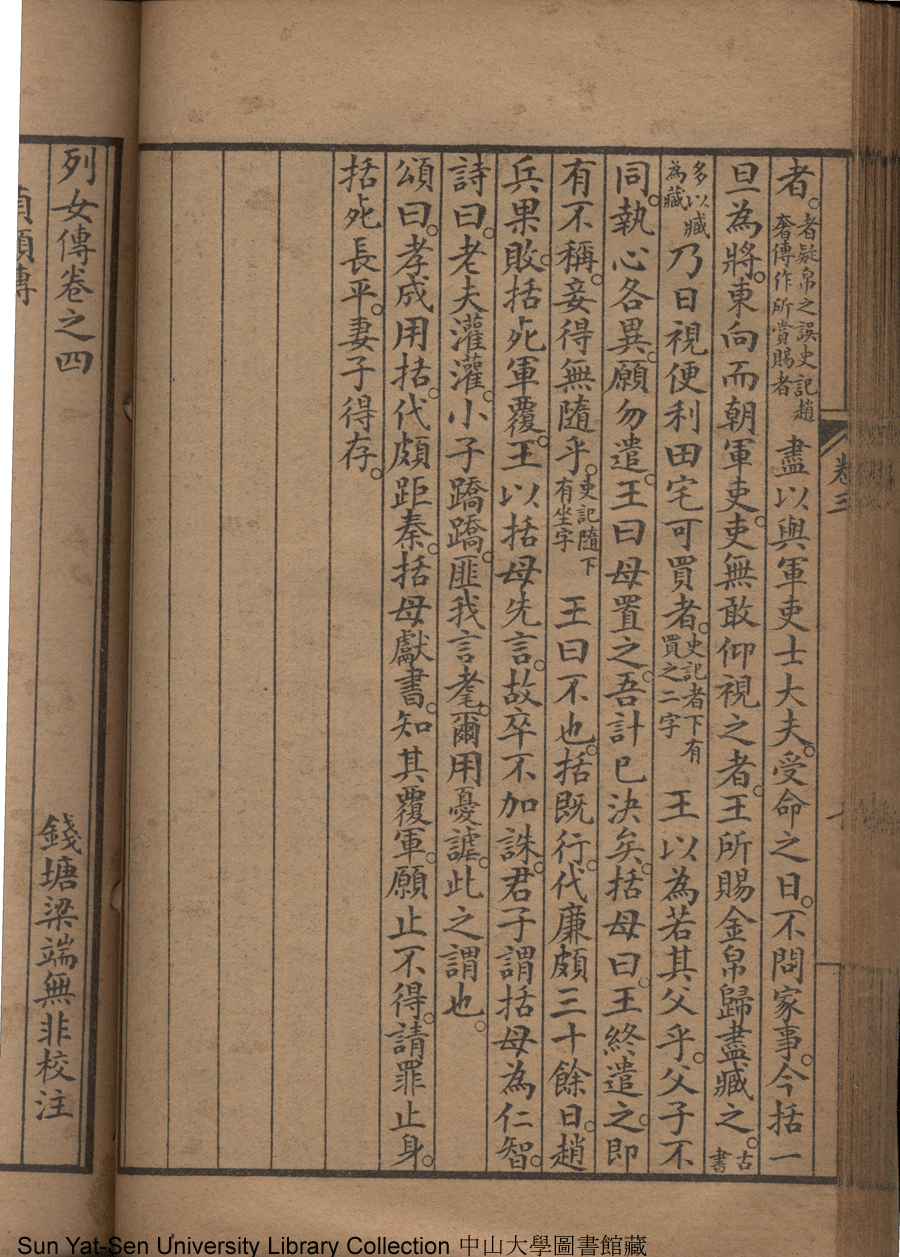 者。者疑帛之誤史記趙奢傳作所賞賜者盡以與軍吏士大夫。受命之日。不問家事。今括一
旦為將。東向而朝軍吏。吏無敢仰視之者。王所賜金帛歸盡臧之。古書
多以臧為藏乃日視便利田宅可買者。史記者下有買之二字王以為若其父乎。父子不
同。執心各異。願勿遣。王曰母置之。吾計已決矣。括母曰。王終遣之。即
有不稱。妾得無隨乎。史記隨下有坐字王曰不也。括既行。代廉頗三十餘日。趙
兵果敗。括死軍覆。王以括母先言。故卒不加誅。君子謂括母為仁智。
詩曰。老夫灌灌。小子蹻蹻。匪我言耄。爾用憂謔。此之謂也。
頌曰。孝成用括。代頗距秦。括母獻書。知其覆軍。願止不得。請罪止身。
括死長平。妻子得存。
卷三
列女傳卷之四
錢塘梁端無非校注
貞順傳
Sun Yat-Sen University Library Collection 中山大學圖書館藏